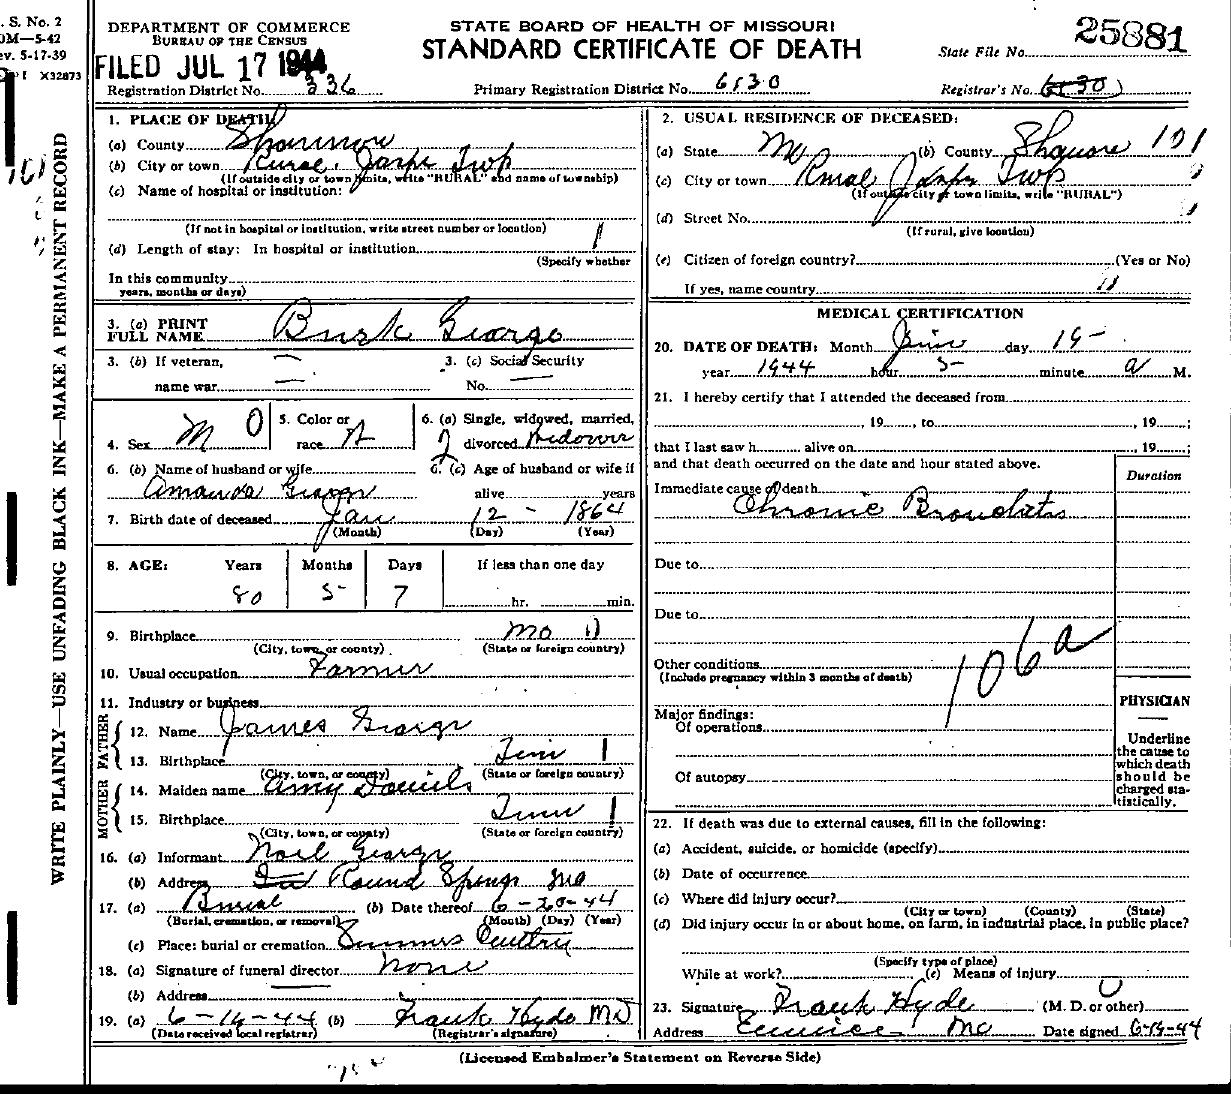 . S. No. 2
0M—5-42
ev. 5-17-39
I X32873
WRITE PLAINLY—USE UNFADING BLACK INK—MAKE A PERMANENT RECORD
DEPARTMENT OF COMMERCE
BUREAU OF THE CENSUS
FILED JUL 17 1944
STATE BOARD OF HEALTH OF MISSOURI
STANDARD CERTIFICATE OF DEATH
State File No. 25881
Registration District No. 336
Primary Registration District No. 6130
Registrar's No.
1. PLACE OF DEATH:
(a) County Shannon
(b) City or town Rural. Jasper Twp
(If outside city or town limits, write "RURAL" and name of township)
(c) Name of hospital or institution:
(If not in hospital or institution, write street number or location)
(d) Length of stay: In hospital or institution
(Specify whether
In this community
years, months or days)
3. (a) PRINT
FULL NAME Burk George
3. (b) If veteran,
name war —
3. (c) Social Security
No. —
4. Sex M 0
5. Color or
race
6. (a) Single, widowed, married,
divorced Widower 2
6. (b) Name of husband or wife
Amanda George
6. (c) Age of husband or wife if
alive years
7. Birth date of deceased Jan 12 - 1864
(Month) (Day) (Year)
8. AGE: Years Months Days If less than one day
80 5 7 hr. min.
9. Birthplace Mo
(City, town, or county) (State or foreign country)
10. Usual occupation Farmer
11. Industry or business
FATHER
12. Name James George
13. Birthplace Tenn 1
(City, town, or county) (State or foreign country)
MOTHER
14. Maiden name Amy Daniels
15. Birthplace Tenn 1
(City, town, or county) (State or foreign country)
16. (a) Informant Noel George
(b) Address Round Springs Mo
17. (a) Burial (b) Date thereof 6-20-44
(Burial, cremation, or removal) (Month) (Day) (Year)
(c) Place: burial or cremation Summers
18. (a) Signature of funeral director none
(b) Address
19. (a) 6-19-44 (b) Frank Hyde MD
(Date received local registrar) (Registrar's signature)
2. USUAL RESIDENCE OF DECEASED:
(a) State Mo (b) County Shannon 101
(c) City or town Rural Jasper Twp
(If outside city or town limits, write "RURAL")
(d) Street No.
(If rural, give location)
(e) Citizen of foreign country? (Yes or No)
If yes, name country
MEDICAL CERTIFICATION
20. DATE OF DEATH: Month June day 19-
year 1944 hour 5- minute a M.
21. I hereby certify that I attended the deceased from
, 19 , to , 19 ;
that I last saw h alive on , 19 ;
and that death occurred on the date and hour stated above.
Duration
Immediate cause of death
Chronic Bronchitis
Due to
Due to
Other conditions
(Include pregnancy within 3 months of death)
106a
Major findings:
Of operations
Of autopsy
PHYSICIAN
—
Underline
the cause to
which death
should be
charged sta-
tistically.
22. If death was due to external causes, fill in the following:
(a) Accident, suicide, or homicide (specify)
(b) Date of occurrence
(c) Where did injury occur?
(City or town) (County) (State)
(d) Did injury occur in or about home, on farm, in industrial place, in public place?
(Specify type of place)
While at work? (e) Means of injury
23. Signature Frank Hyde (M. D. or other)
Address Eminence Mo Date signed 6-19-44
(Licensed Embalmer's Statement on Reverse Side)